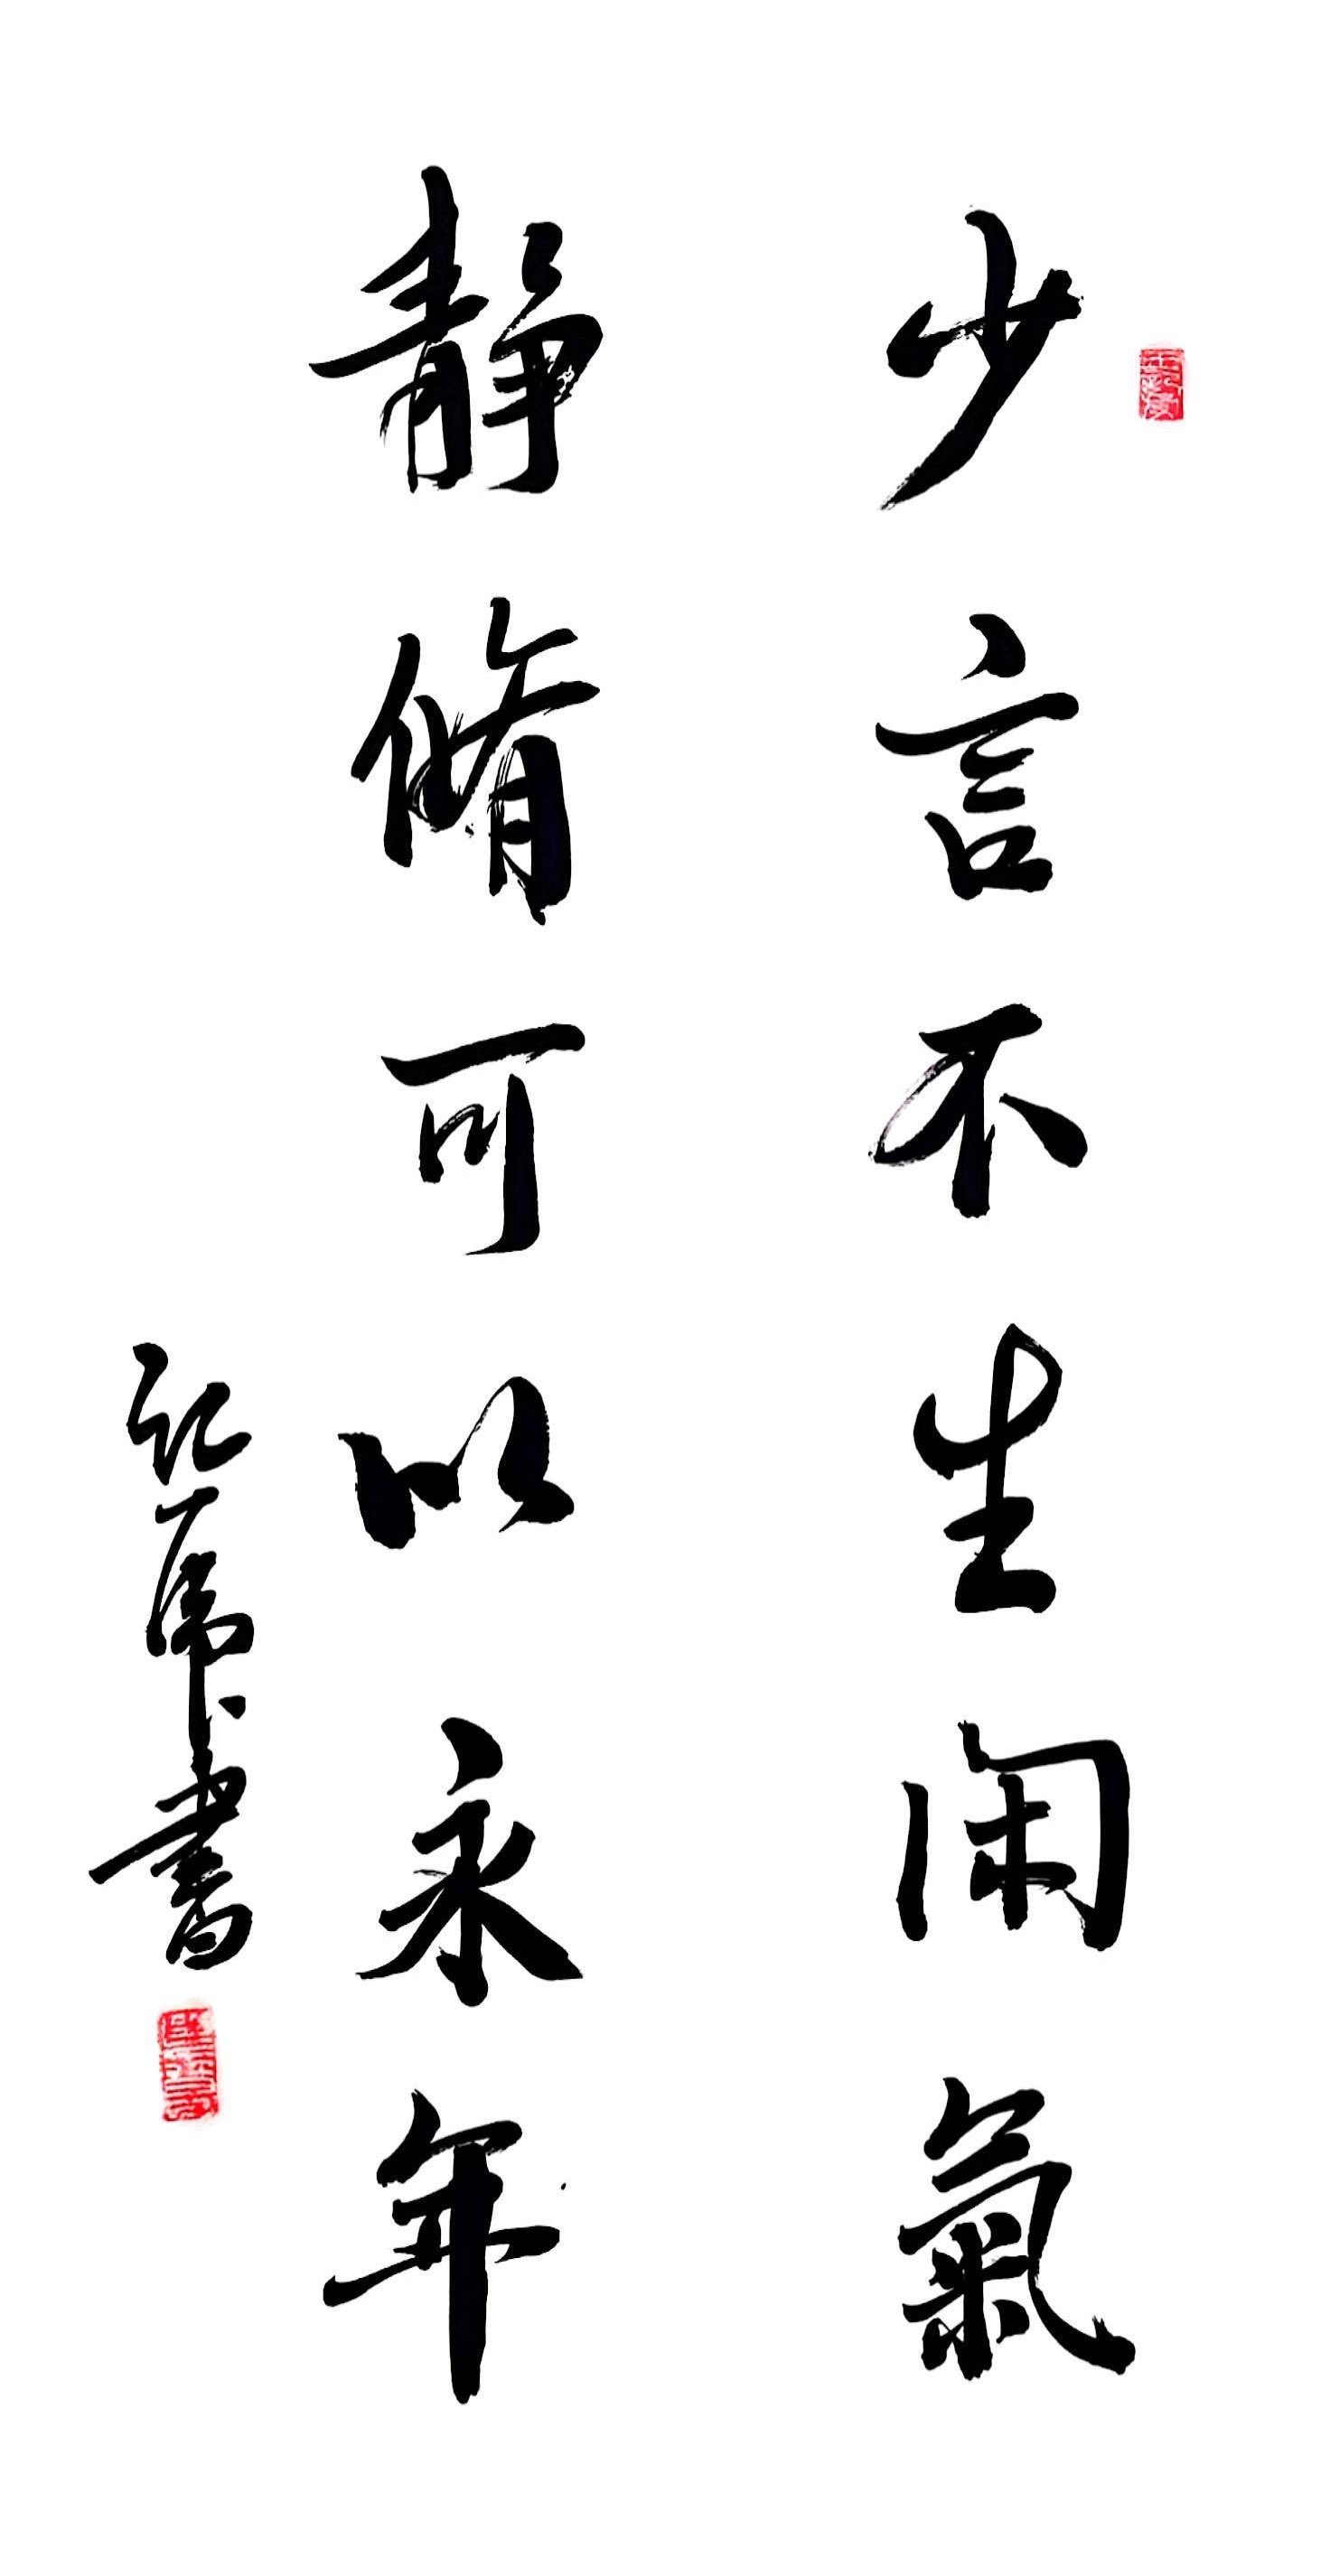 少言不生闲氣
静脩可以永年
書